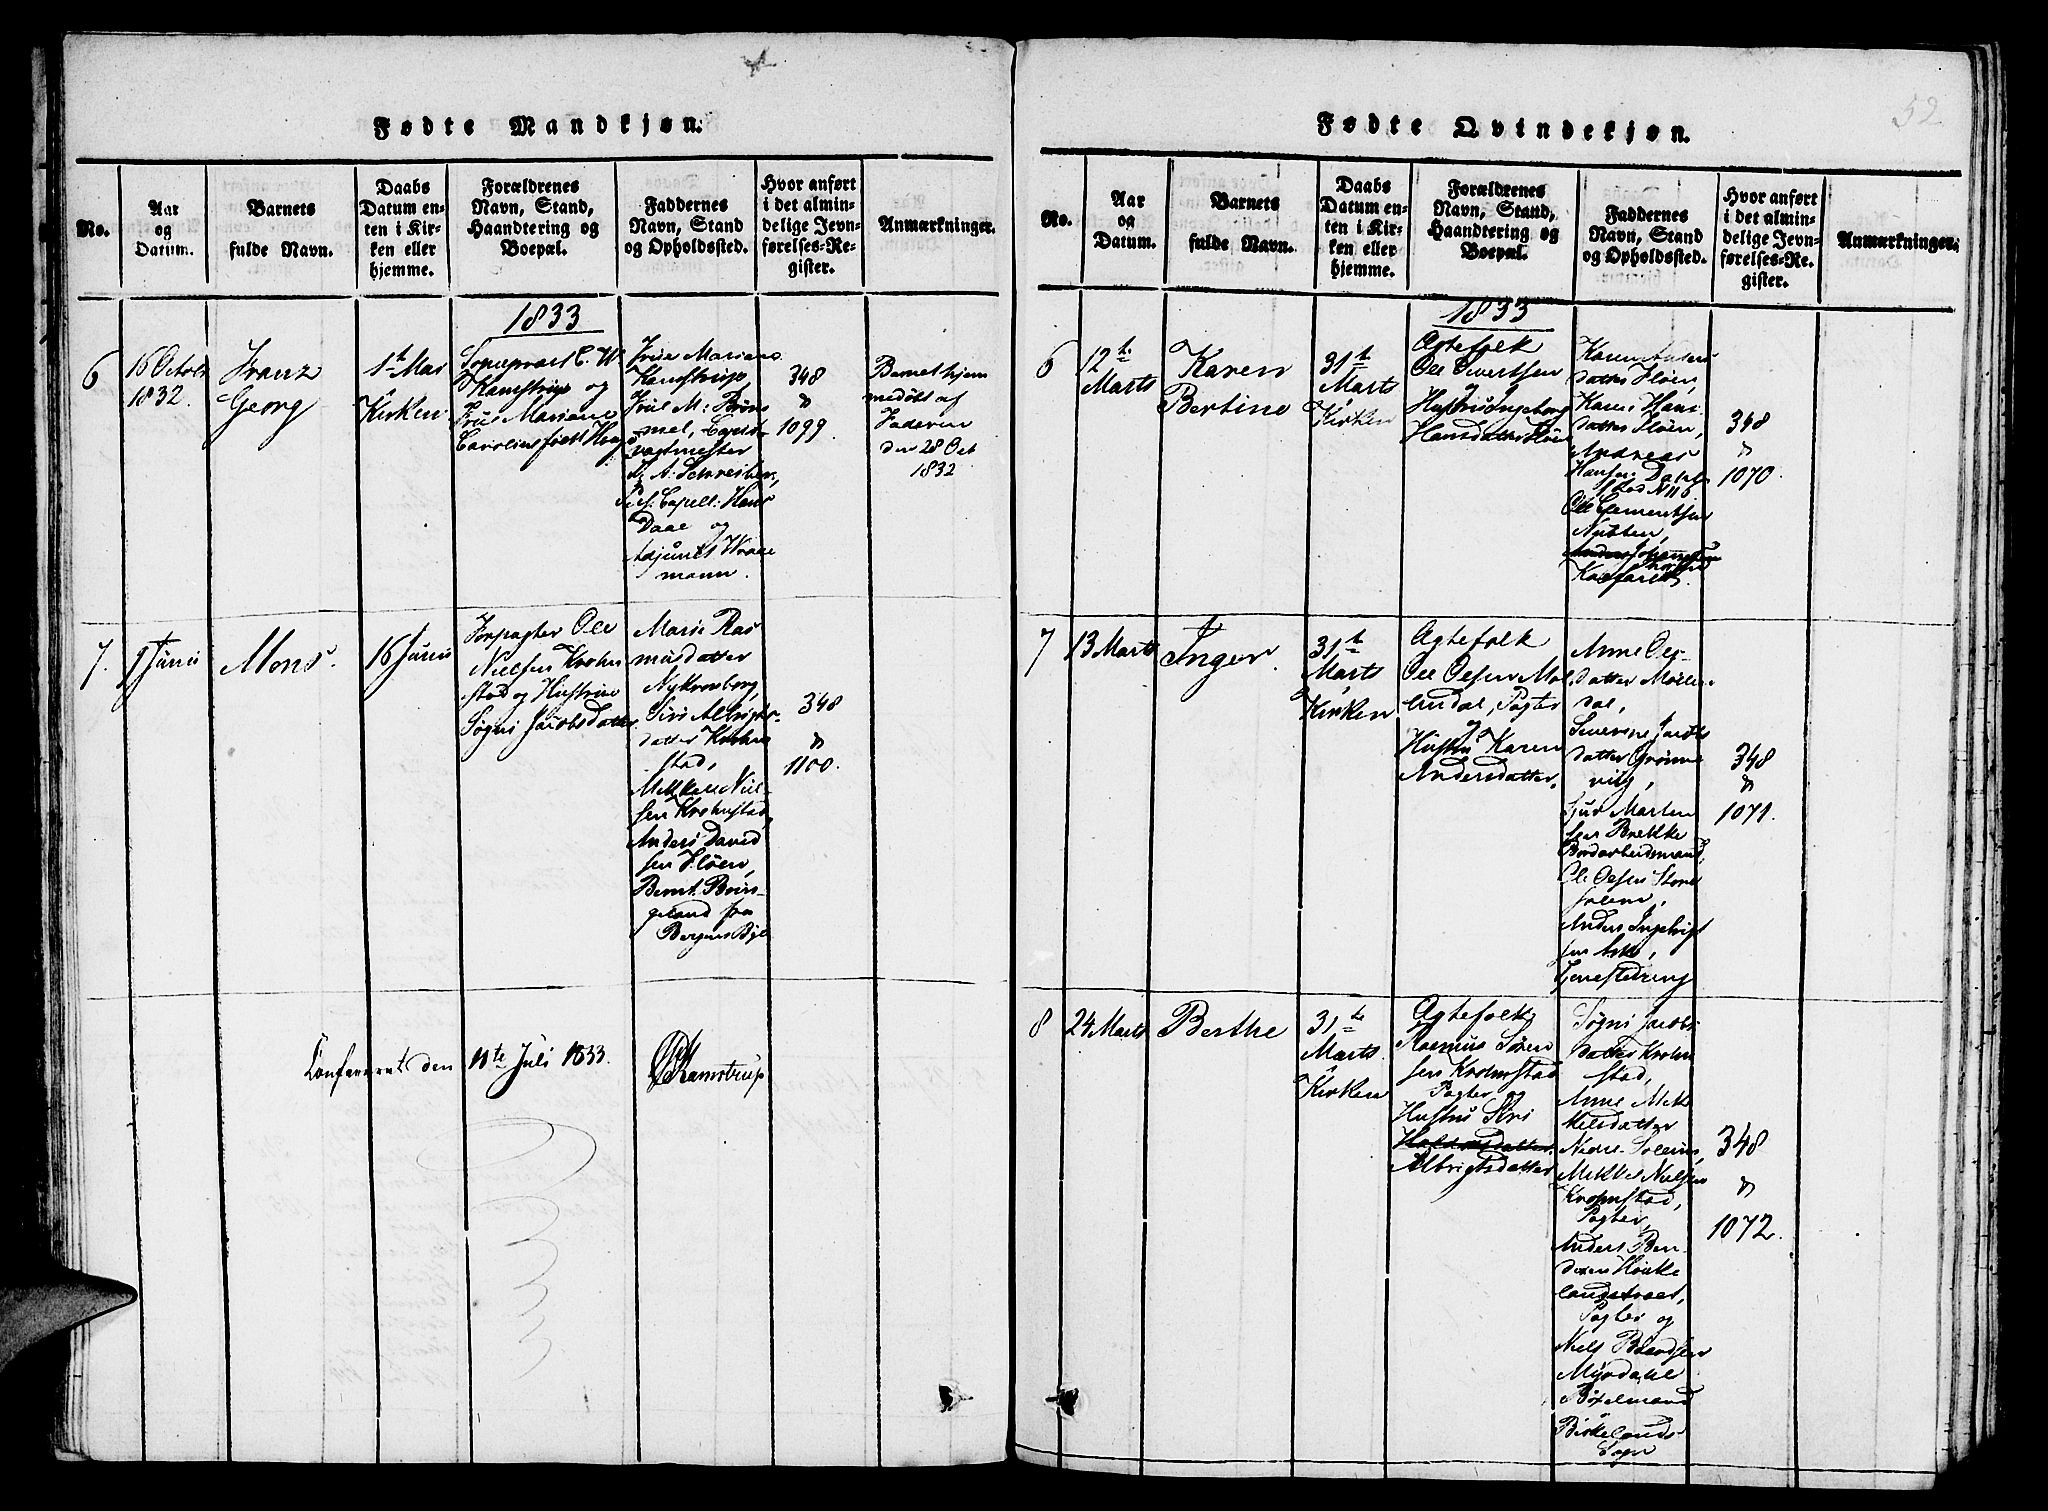 52
Fødte Mandkjøn.
No.
Aar
og
Datum.
Barnets
fulde Navn.
Daabs
Datum en-
ten i Kir-
ken eller
hjemme.
Forældrenes
Navn, Stand,
Haandtering og
Boepæl.
Faddernes
Navn, Stand
og Opholdssted.
Hvor anført
i det almin-
delige Jevn-
førelses-Re-
gister.
Anmærkninger.
1833
6
16 Octobr
1832.
Franz
Georg
1te Mai
Kirken
Sognepræst C. W
Kamstrup og
Frue Mariane
Caroline født
Frue Mariane
Kamstrup,
Frue M:
vagtmester
A: Schreiber,
Capell: Hans
Daae og
Adjunct
mann.
348
&
1099.
Barnet hjem
medøbt af
Faderen
den 28 Oct
1832
7.
Junii
Mons.
16 Junii
Forpagter Ole
Nielsen Krohn
stad og Hustrue
Søgni Jacobsdatter
Marie Ras
musdatter
Nykronborg,
Siri Albrigts-
datter Krohn
stad,
Mikkel Niel
sen Krohnstad,
Anders David
sen Fløen,
Bernt
geland fra
Bergens Bye
348
&
1100.
Confereret den 11te Juli 1833.
Kamstrup
Fødte Qvindekjøn.
No.
Aar
og
Datum.
Barnets
fulde Navn.
Daabs
Datum en-
ten i Kir-
ken eller
hjemme.
Forældrenes
Navn, Stand,
Haandtering og
Boepæl.
Faddernes
Navn, Stand
og Opholdssted.
Hvor anført
i det almin-
delige Jevn-
førelses-Re-
gister.
Anmærkninger.
1833
6
12te
Marts
Karen
Bertine
31te
Marts
Kirken
Ægtefolk
Ole Sivertsen
Hustru Ingeborg
Hansdatter Fløen
Karen Anders
datter Fløen,
Karen Hans
datter Fløen,
Andreas
Hansen
stad No 116
Ole Clementsen
Nubben,
348
&
1070.
7
13 Marts
Inger.
31te
Marts
Kirken
Ægtefolk
Ole Olsen Møl
lendal, Pagter
og
Hustru Karen
Andersdatter.
Anne Ols-
datter Møllen
dal,
Severine Jacobs
datter Grønne
vilg,
Sjur Marten
sen Brekke
Bordarbeidsmand,
Ole Olsen Store
solem,
Anders Ingebrigt
sen Ask,
Tjenestedreng
348
&
1071.
8
24 Marts
Berthe
31te
Marts.
Kirken
Ægtefolk
Rasmus Søren
sen Krohnstad
Pagter og
Hustru Siri
Albrigtsdatter
Søgni Jacobs
datter Krohn
stad,
Anne
Nilsdatter
Nedre Solem,
Mikkel Nielsen
Krohnstad,
Pagter,
Anders Ben
Houke
landstræet,
Pagter og
Niels Baardsen
Myrdahl
Bøxelmand
Birkelands
Sogn
348
&
1072.